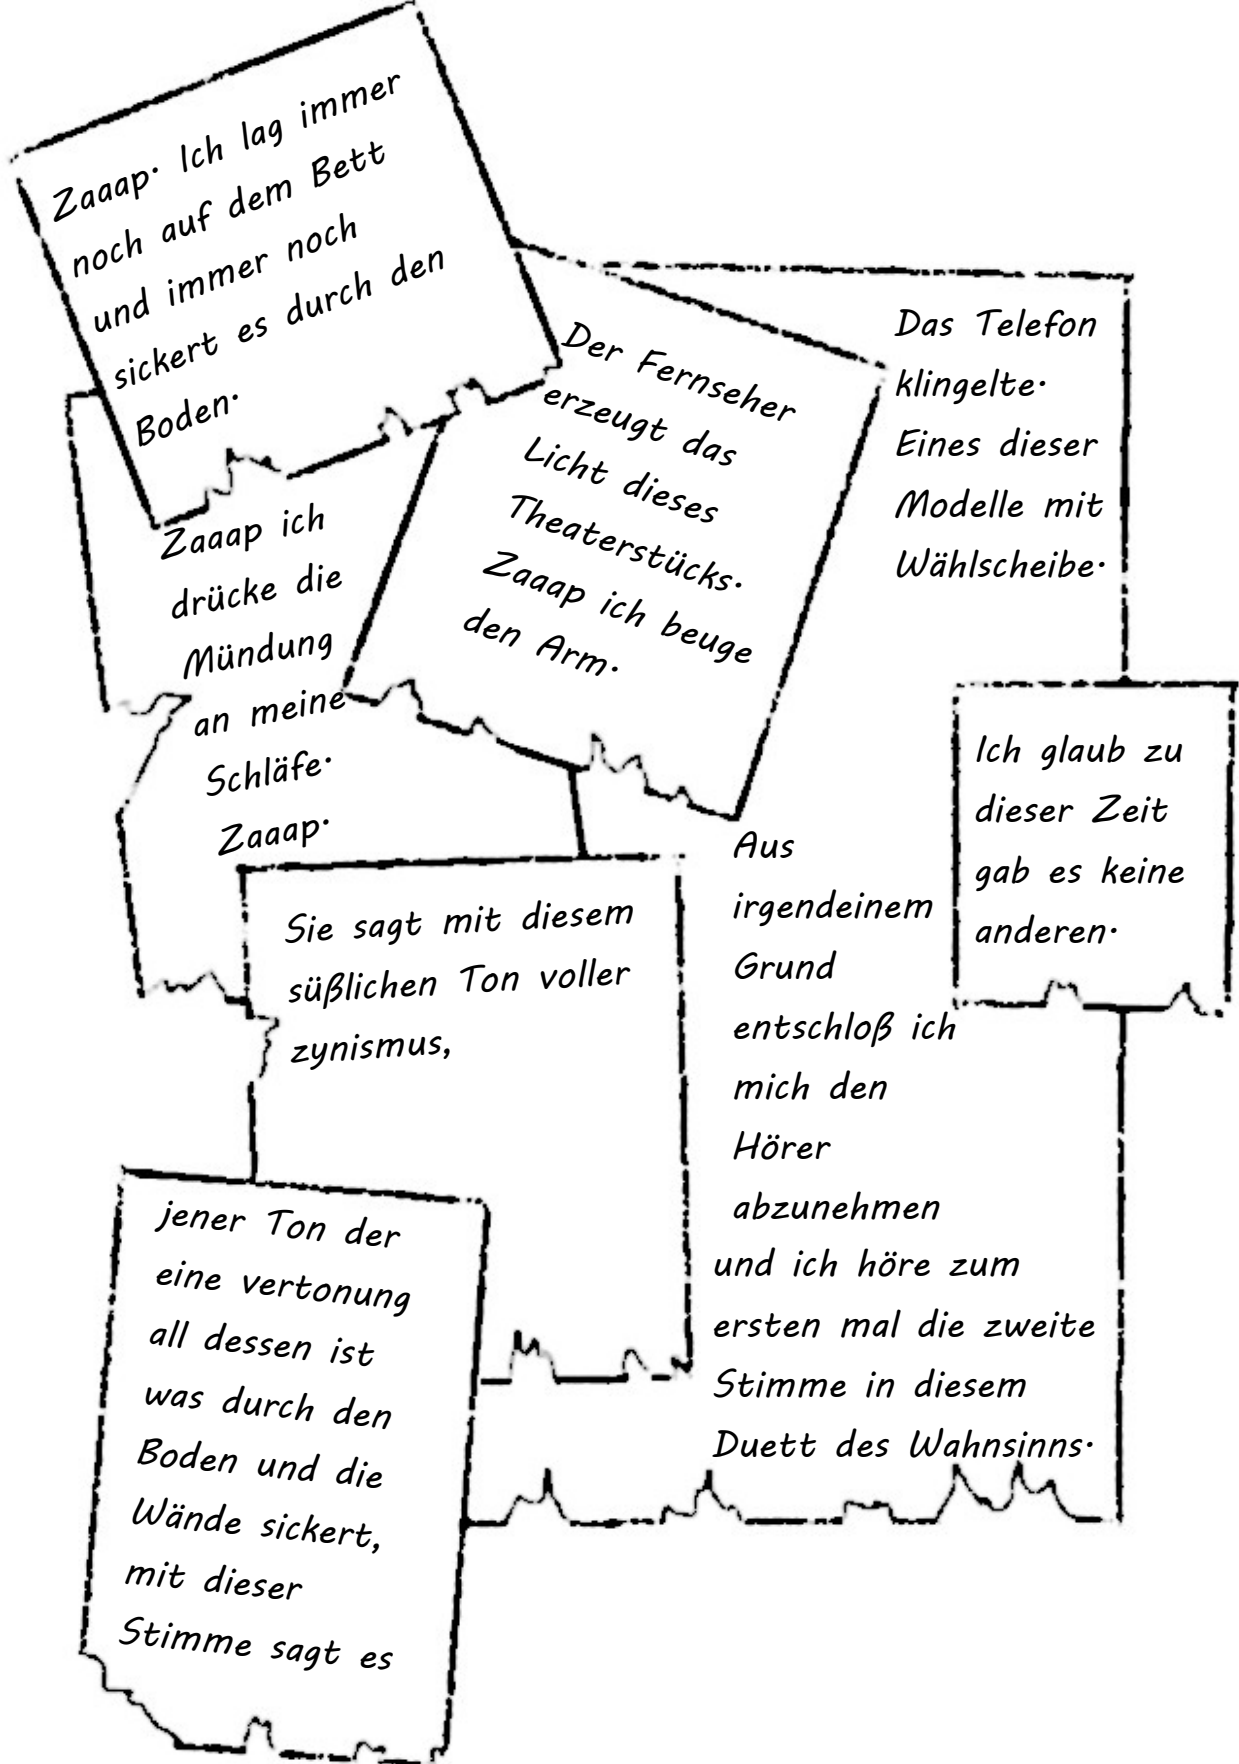 Zaaap. Ich lag immer
noch auf dem Bett
und immer noch
sickert es durch den
Boden.
Der Fernseher
erzeugt das
Licht dieses
Theaterstücks.
Zaaap ich beuge
den Arm.
Zaaap ich
drücke die
Mündung
an meine
Schläfe.
Zaaap.
Das Telefon
klingelte.
Eines dieser
Modelle mit
Wählscheibe.
Ich glaub zu
dieser Zeit
gab es keine
anderen.
Aus
irgendeinem
Grund
entschloß ich
mich den
Hörer
abzunehmen
und ich höre zum
ersten mal die zweite
Stimme in diesem
Duett des Wahnsinns.
Sie sagt mit diesem
süßlichen Ton voller
zynismus,
jener Ton der
eine vertonung
all dessen ist
was durch den
Boden und die
Wände sickert,
mit dieser
Stimme sagt es